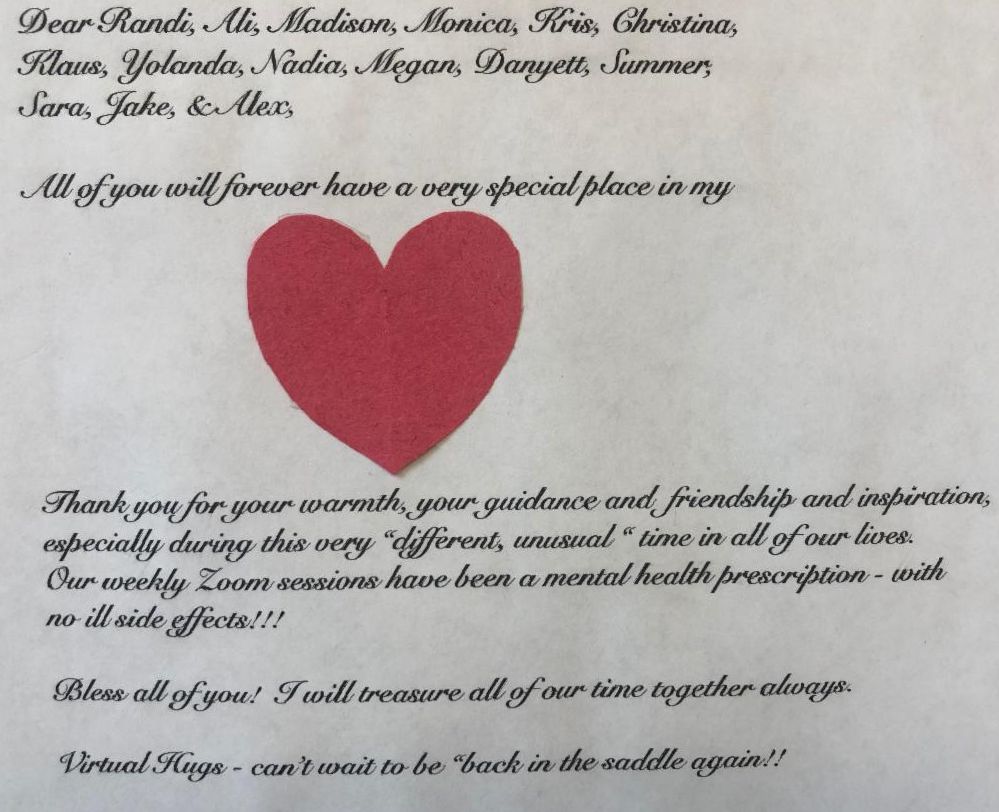 Dear Randi, Ali, Madison, Monica, Kris, Christina,
Klaus, Yolanda, Nadia, Megan, Danyett, Summer,
Sara, Jake, & Alex,
All of you will forever have a very special place in my
Thank you for your warmth, your guidance and friendship and inspiration,
especially during this very “different, unusual “ time in all of our lives.
Our weekly Zoom sessions have been a mental health prescription - with
no ill side effects!!!
Bless all of you! I will treasure all of our time together always.
Virtual Hugs - can't wait to be “back in the saddle again!!